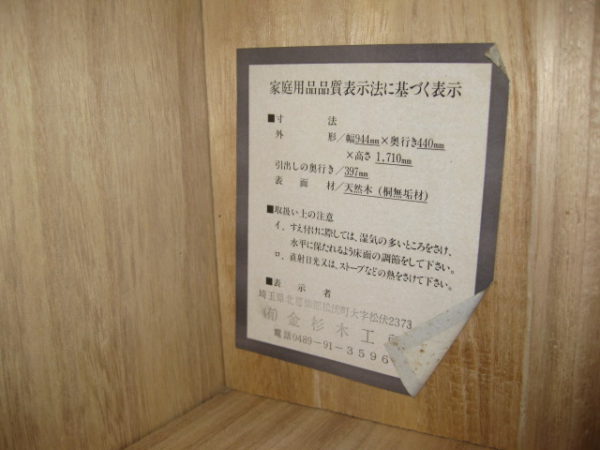 家庭用品品質表示法に基づく表示
■寸　　　法
外　　　形／幅944mm×奥行き440mm
×高さ 1,710mm
引出しの奥行き／397mm
表　面　材／天然木（桐無垢材）
■取扱い上の注意
イ、すえ付けに際しては、湿気の多いところをさけ、
水平に保たれるよう床面の調節をして下さい。
ロ、直射日光又は、ストーブなどの熱をさけて下さい。
■表　示　者
埼玉県北葛飾郡松伏町大字松伏2373
㈲金杉木工
電話0489-91-3596